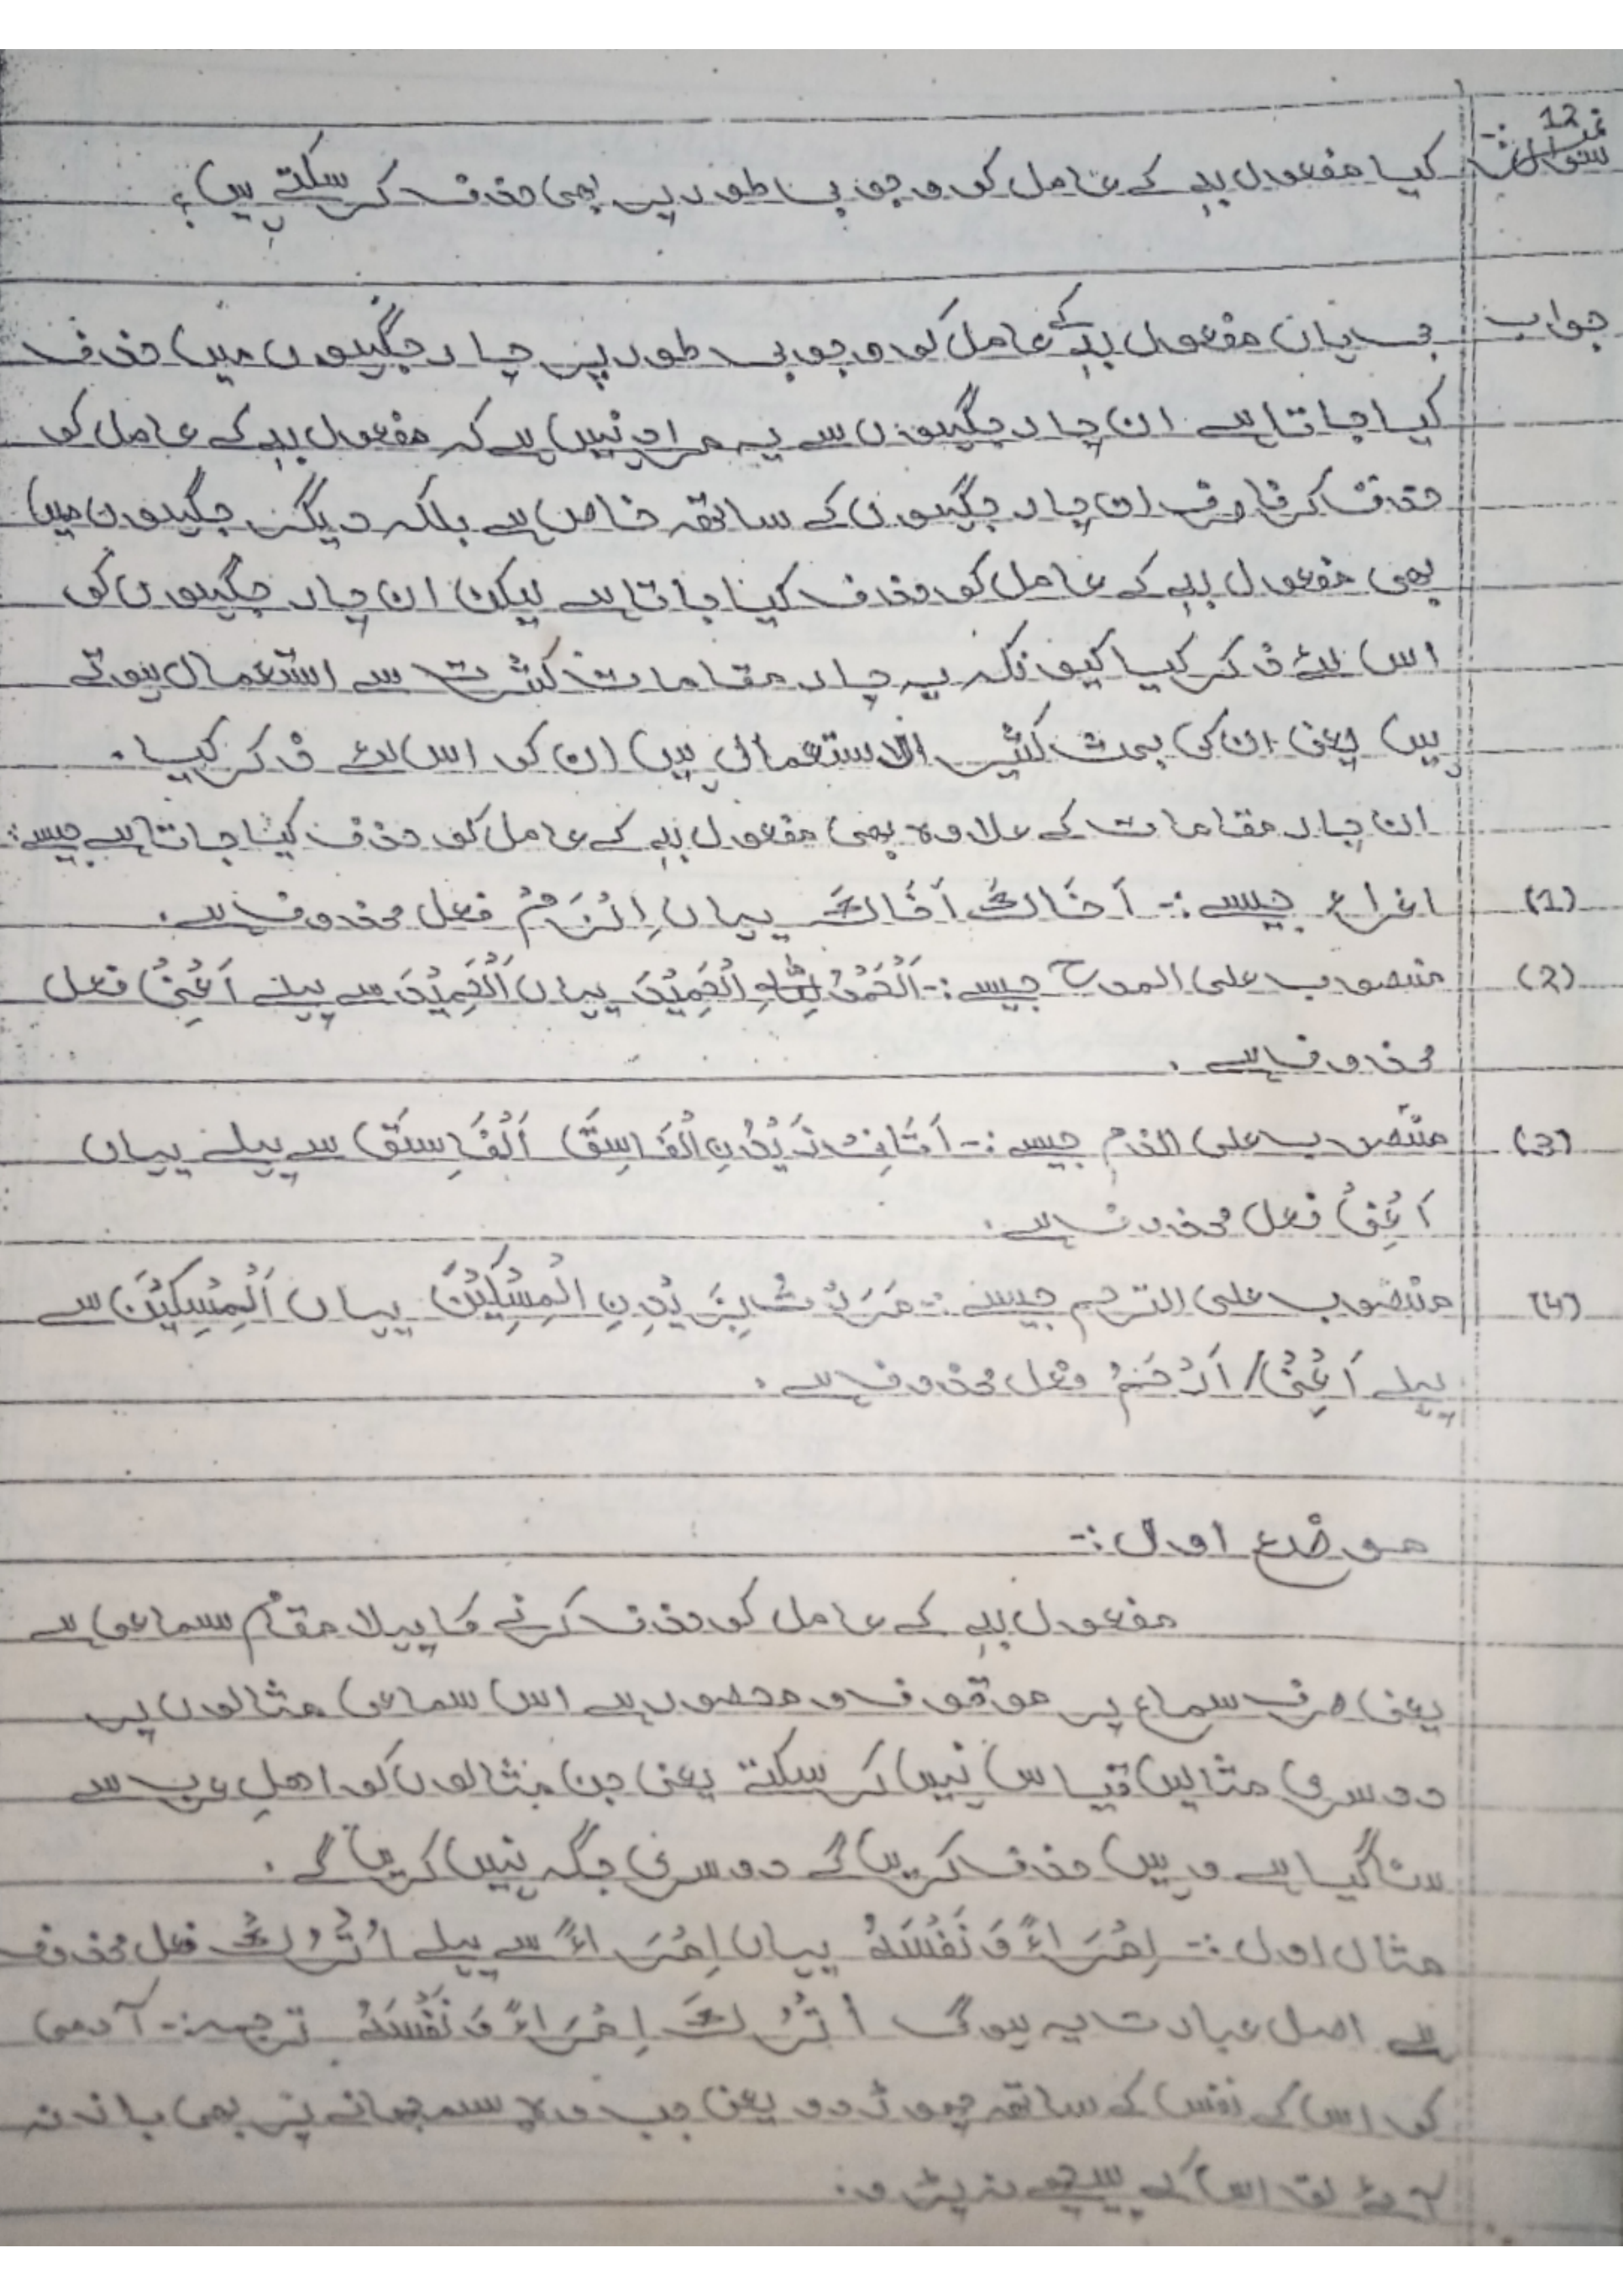 سوال نمبر 12:- کیا مفعول بہٖ کے عامل کو وجوبی طور پر بھی حذف کر سکتے ہیں؟
جواب جی ہاں مفعول بہٖ کے عامل کو وجوبی طور پر چار جگہوں میں حذف
کیا جاتا ہے ان چار جگہوں سے یہ مراد نہیں ہے کہ مفعول بہٖ کے عامل کو
حذف کرنا صرف ان چار جگہوں کے ساتھ خاص ہے بلکہ دیگر جگہوں میں
بھی مفعول بہٖ کے عامل کو حذف کیا جاتا ہے لیکن ان چار جگہوں کو
اس لئے ذکر کیا کیونکہ یہ چار مقامات کثرت سے استعمال ہوتے
ہیں یعنی ان کی بحث کثیر الاستعمالی ہیں ان کو اس لئے ذکر کیا۔
ان چار مقامات کے علاوہ بھی مفعول بہٖ کے عامل کو حذف کیا جاتا ہے جیسے:
(1) اغراء جیسے:- اَخَاكَ اَخَاكَ یہاں اِلْزَمْ فعل محذوف ہے۔
(2) منصوب علی المدح جیسے:- اَلْحَمْدُ لِلّٰهِ الْحَمِيْدَ یہاں اَلْحَمِيْدَ سے پہلے اَعْنِيْ فعل
محذوف ہے۔
(3) منصوب علی الذم جیسے:- اَتَانِيْ زَيْدُنِ الْفَاسِقَ اَلْفَاسِقَ سے پہلے یہاں
اَعْنِيْ فعل محذوف ہے۔
(4) منصوب علی الترحم جیسے:- مَرَرْتُ بِزَيْدِنِ الْمِسْكِيْنَ یہاں اَلْمِسْكِيْنَ سے
پہلے اَعْنِيْ/ اَرْحَمُ فعل محذوف ہے۔
موضع اول:-
مفعول بہٖ کے عامل کو حذف کرنے کا پہلا مقام سماعی ہے
یعنی صرف سماع پر موقوف و محصور ہے اس سماعی مثالوں پر
دوسری مثالیں قیاس نہیں کر سکتے یعنی جن مثالوں کو اہلِ عرب سے
سنا گیا ہے وہیں حذف کریں گے دوسری جگہ نہیں کریں گے۔
مثال اول:- اِمْرَاءً وَ نَفْسَهٗ یہاں اِمْرَاءً سے پہلے اُتْرُكْ فعل محذوف
ہے اصل عبارت یہ ہوگی اُتْرُكْ اِمْرَاءً وَ نَفْسَهٗ ترجمہ:- آدمی
کو اس کے نفس کے ساتھ چھوڑ دو یعنی جب وہ سمجھانے پر بھی باز نہ
آئے تو اس کے پیچھے نہ پڑو۔